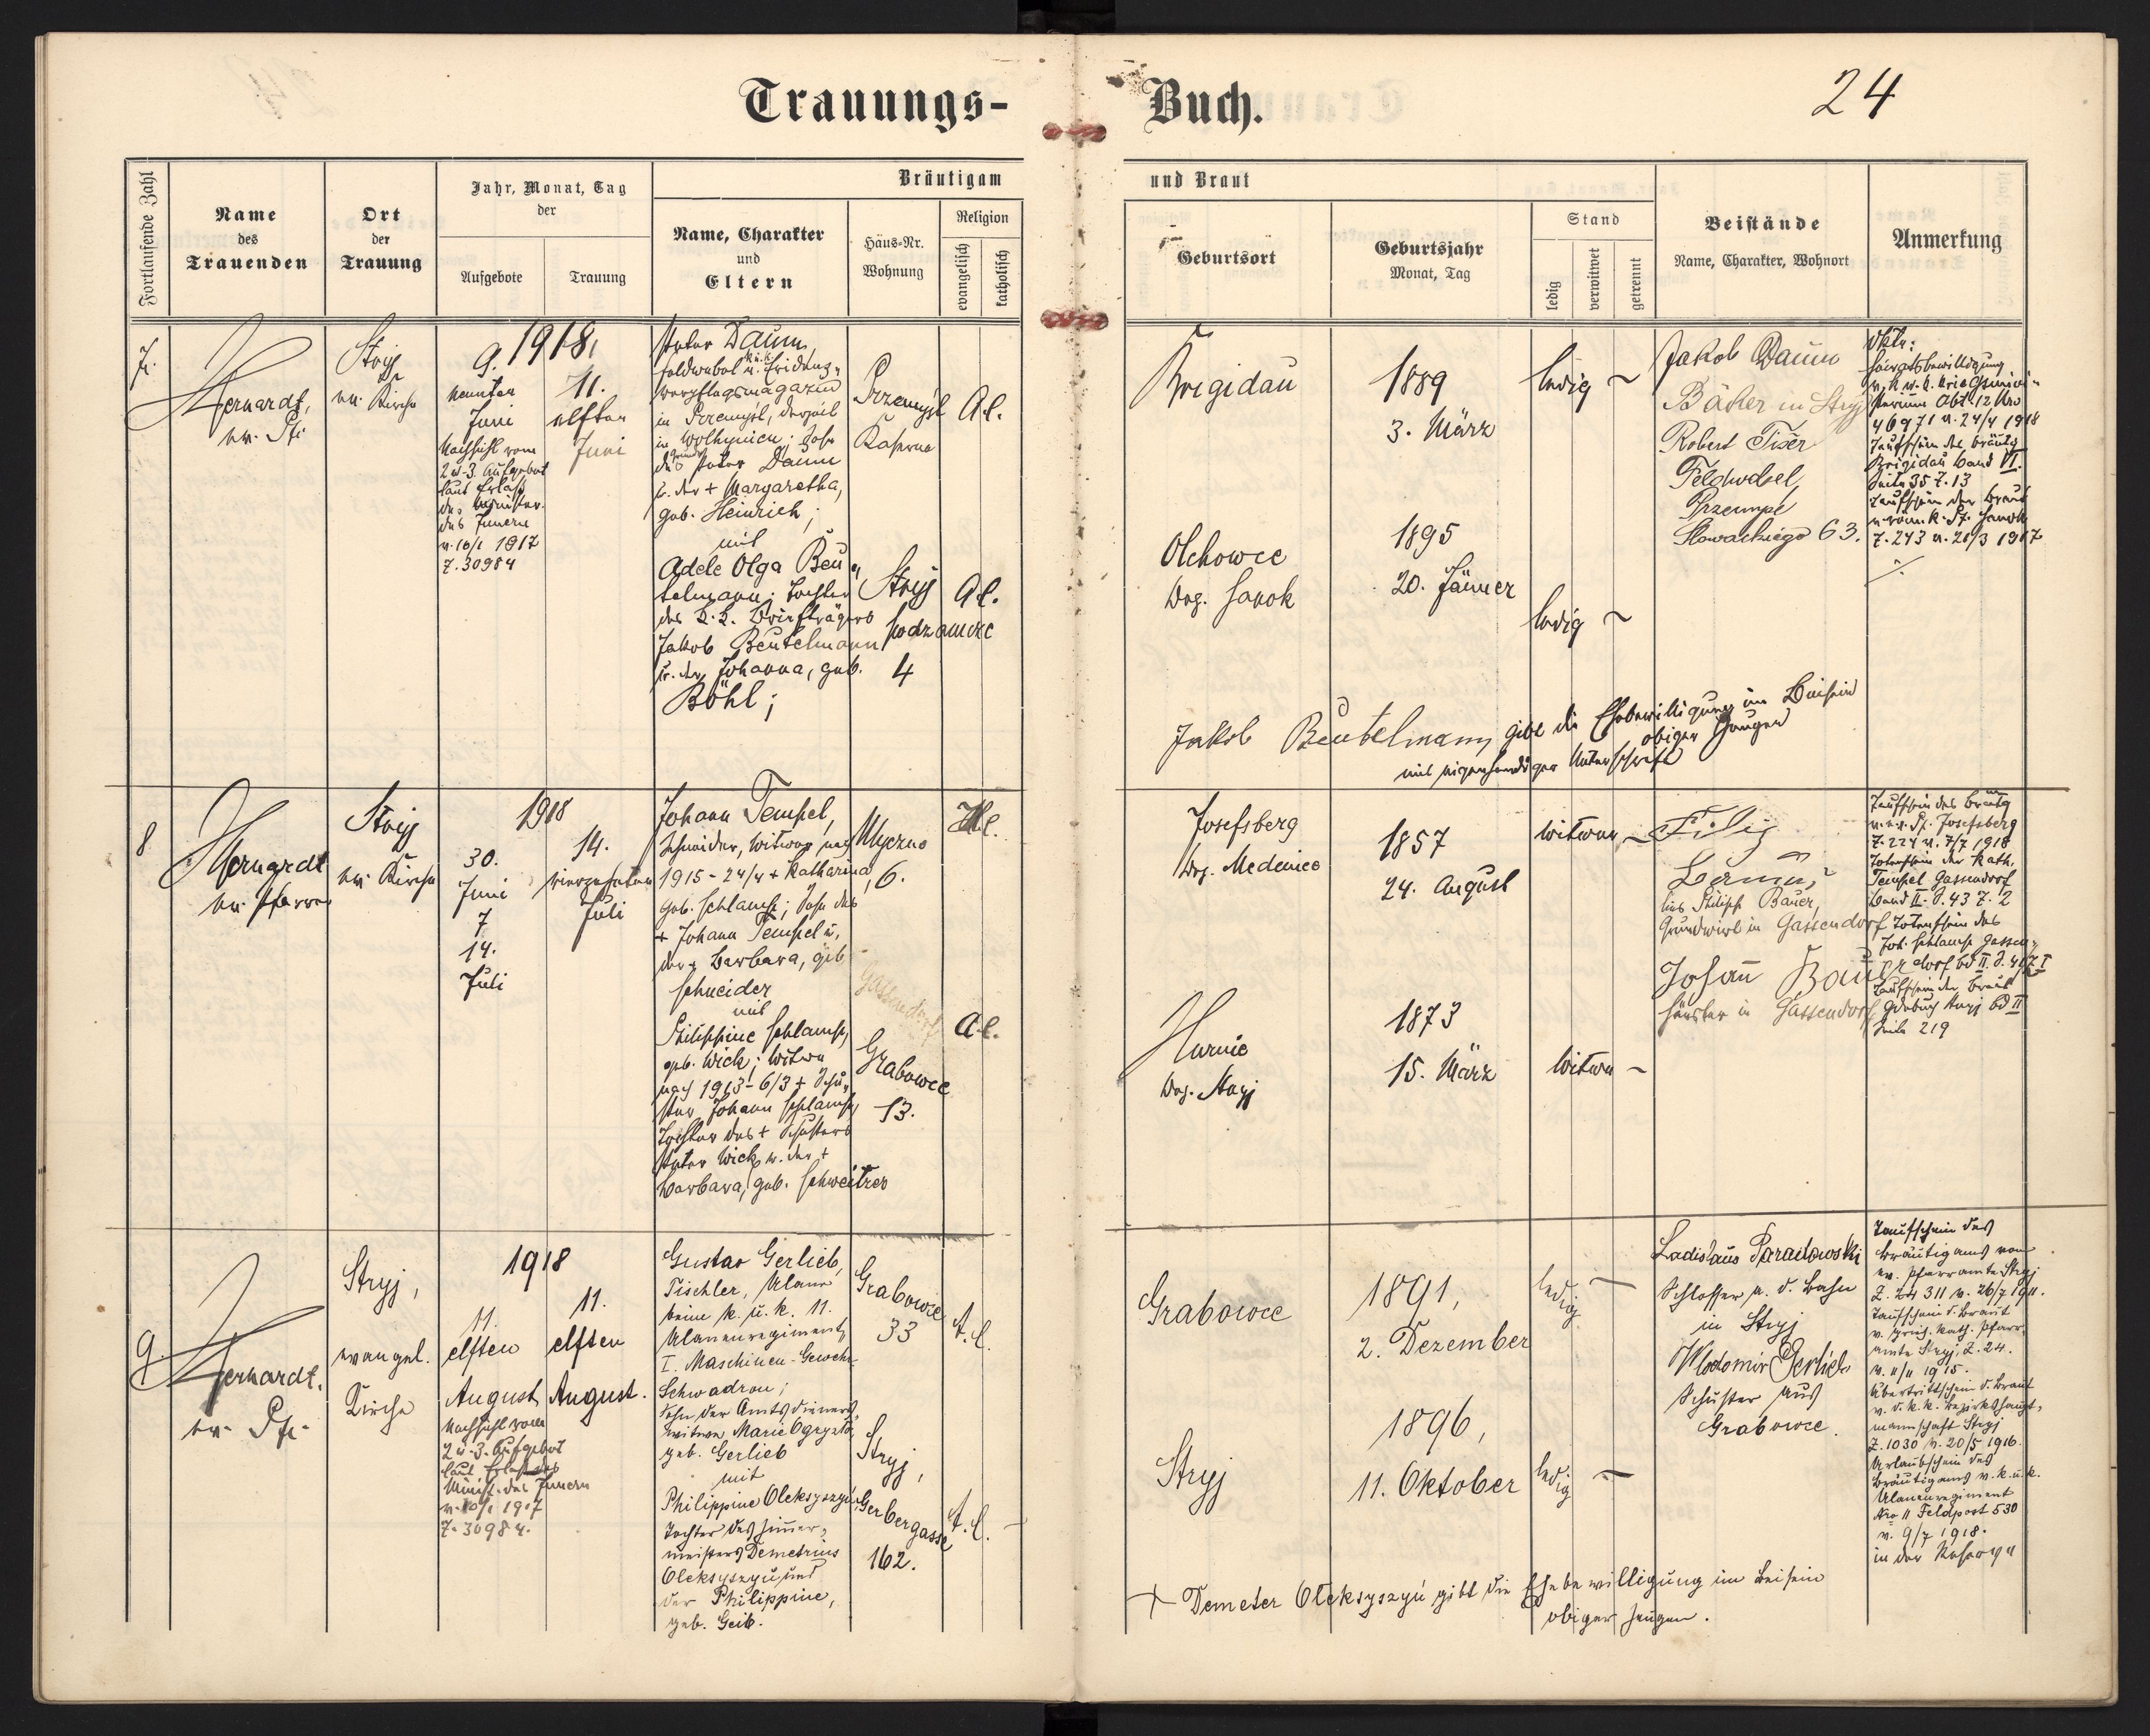 Trauungs- Buch.
24
Fortlaufende Zahl
Name
des
Trauenden
Ort
der
Trauung
Jahr, Monat, Tag
der
Aufgebote
Trauung
Bräutigam
und Braut
Name, Charakter
und
Eltern
Haus-Nr.
Wohnung
Religion
evangelisch
katholisch
Geburtsort
Geburtsjahr
Monat, Tag
Stand
ledig
verwitwet
getrennt
Beistände
Name, Charakter, Wohnort
Anmerkung
7.
ev. Pfr.
Stryj
ev. Kirche
1918.
9.
neunten
Juni
Nachsicht vom
2 u. 3. Aufgebot
laut Erlaß
des Minister.
des Innern
v. 10/1 1917
Z. 30984
11.
elften
Juni
Peter Daum,
Feldwebel
verpflegsmagazin
in Przemyśl, derzeit
in Wolhynien; Sohn
des Peter Daum
u. der + Margaretha,
geb. Heinrich;
mit
Adele Olga Beu
telmann; Tochter
des k. k. Briefträgers
Jakob Beutelmann
u. der Johanna, geb.
Böhl;
Przemyśl
Kaserne
A.C.
Stryj
Podzamcze
4
A.C.
Brigidau
1889
3. März
ledig
Olchowce
Bez. Sanok
1895
20. Jänner
ledig
Jakob Daum
Bäcker in Stryj
Robert Tiser
Feldwebel
Slowackiego 63.
46971 v. 24/4 1918
Taufschein des Bräutig
Brigidau Band VI.
Seite 35 Z. 13
Taufschein der Braut
Z. 243 v. 21/3 1917
Jakob Beutelmann gibt die Ehebewilligung im Beisein
obiger Zeugen
mit eigenhändiger Unterschrift
8
ev. Pfarrer
Stryj
ev. Kirche
1918
30.
Juni
7
14.
Juli
14.
vierzehnten
Juli
Johann Tempel,
Schneider, Witwer nach
1915 - 24/4 + Katharina
geb. Schlamp; Sohn des
+ Johann Tempel u.
der + Barbara, geb
Schneider
mit
Philippine Schlamp,
geb. Wick; Witwe
nach 1913 - 6/3 + Schu
ster Johann Schlamp
Tochter des + Schusters
Peter Wick u. der +
Barbara, geb. Schweitzer
6.
H.C.
Gassendorf
Grabowce
13.
A.C.
Josefsberg
Bez. Medenice
1857
24. August
Witwer
Hurnie
Bez. Stryj
1873
15. März
Witwe
Philipp Bauer,
Grundwirt in Gassendorf
Johann Bauer
in Gassendorf
Taufschein des Bräutig
Josefsberg
Z. 224 v. 7/7 1918
Totenschein der Kath.
Tempel Gassendorf
Band II. S. 43 Z. 2
Totenschein des
Joh. Schlamp Gassen
dorf Bd II
Taufschein der Braut
Stryj Bd II
Seite 219
9.
ev. Pfr.
Stryj,
evangel.
Kirche
1918
11.
elften
August
Nachsicht vom
2 u. 3. Aufgebot
laut Erlaß des
Minist. des Innern
v. 10/1 1917
Z. 30984.
11.
elften
August.
Gustav Gerlieb,
Tischler, Ulane
beim k. u. k. 11.
Ulanenregiment,
I. Maschinen-Gewehr
Schwadron;
Sohn der Amtsdieners
witwe Marie
geb. Gerlieb
mit
Philippine Oleksyszyn
Tochter des Zimmer
meisters Demetrius
Oleksyszyn und
der Philippine,
geb. Geib.
Grabowce
33
A.C.
Stryj,
Gerbergasse
162.
A.C.
Grabowce
1891,
2. Dezember
ledig
Stryj
1896,
11. Oktober
ledig
Ladislaus
Schlosser a. d. Bahn
in Stryj
Wlodomir Gerlieb
Schuster aus
Grabowce.
Taufschein des
Bräutigams vom
ev. Pfarramte Stryj
Z. 311 v. 26/7 1911.
Taufschein d. Braut
v. griech. kath. Pfarr
amte Stryj Z. 24.
v. 11/11 1915.
Übertrittschein d. Braut
v. d. k. k. Bezirkshaupt
mannschaft Stryj
Z. 1030 v. 20/5 1916.
Urlaubschein des
Bräutigams v. k. u. k.
Ulanenregiment
Nro 11 Feldpost 530
v. 9/7 1918.
+ Demeter Oleksyszyn gibt die Ehebewilligung im Beisein
obiger Zeugen.